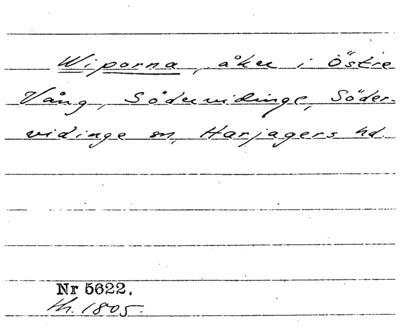 Wiporna, åker i Östre
Vång, Södervidinge, Söder-
vidinge sn, Harjagers hd.
Nr 5622.
th. 1805.